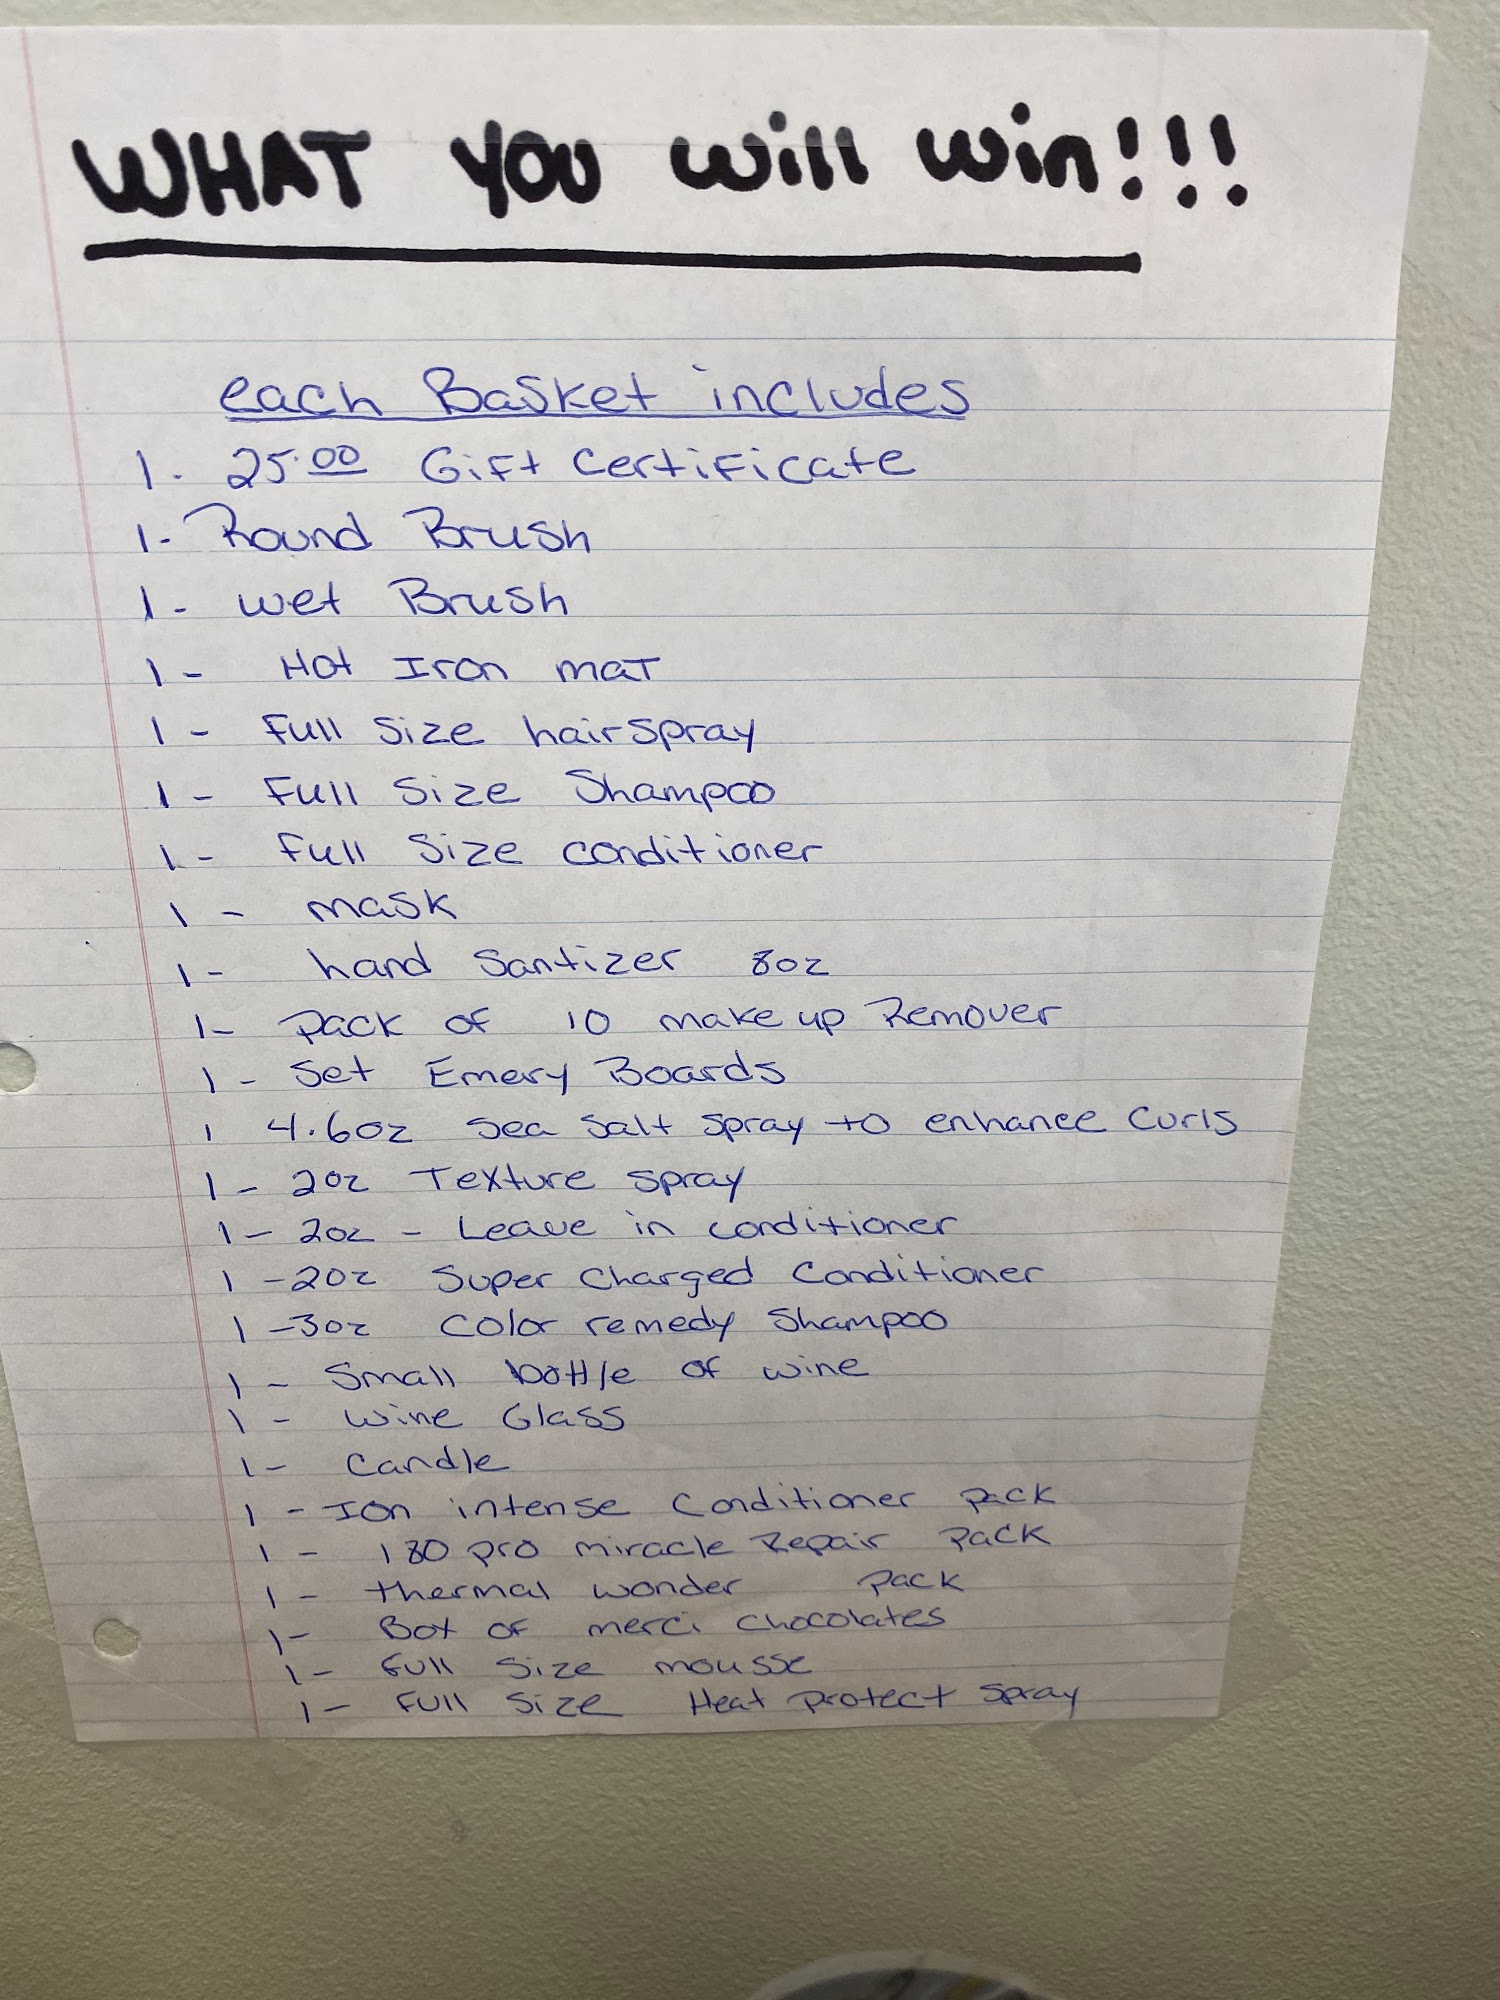 WHAT YOU will win!!!
each Basket includes
1. 25.00 Gift Certificate
1- Round Brush
1- wet Brush
1- Hot Iron maT
1- Full Size hairspray
1- Full Size Shampoo
1- Full Size conditioner
1- mask
1- hand Santizer 8oz
1- Pack of 10 make up Remover
1- Set Emery Boards
1 4.6oz Sea Salt Spray to enhance Curls
1- 2oz Texture Spray
1- 2oz - Leave in conditioner
1-2oz Super Charged Conditioner
1-3oz Color remedy Shampoo
1- Small bottle of wine
1- Wine Glass
1- Candle
1- Ion intense Conditioner pack
1- 180 pro miracle Repair Pack
1- thermal wonder Pack
1- Box of merci Chocolates
1- Full Size mousse
1- Full Size Heat Protect Spray